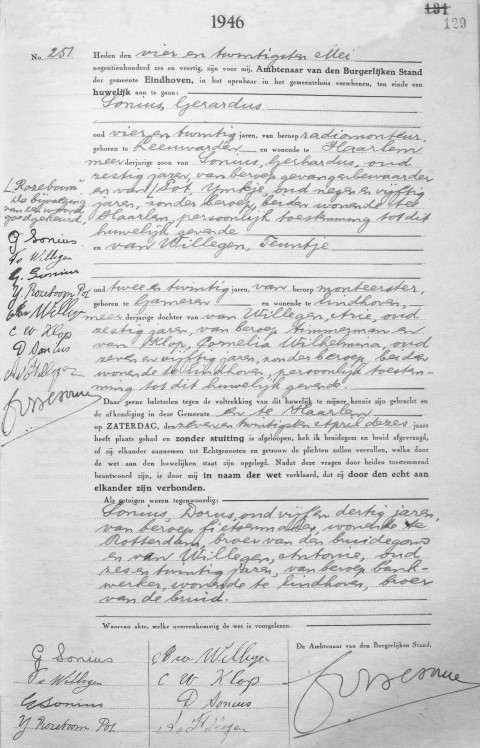 1946
191
129
No. 251
Heden den vier en twintigsten Mei
negentienhonderd zes en veertig, zijn voor mij, Ambtenaar van den Burgerlijken Stand
der gemeente Eindhoven, in het openbaar in het gemeentehuis verschenen, ten einde een
huwelijk aan te gaan:
Sonius, Gerardus
oud vier en twintig jaren, van beroep radiomonteur,
geboren te Leeuwarden en wonende te Haarlem
meerderjarige zoon van Sonius, Gerhardus, oud
zestig jaren, van beroep gevangenbewaarder
en van Pot, Ymkje, oud negen en vijftig
jaren, zonder beroep, beiden wonende te
Haarlem, persoonlijk toestemming tot dit
huwelijk gevende
en van Willegen, Teuntje
oud twee en twintig jaren, van beroep monteerster,
geboren te Gameren en wonende te Eindhoven,
meerderjarige dochter van van Willegen, Arie, oud
zestig jaren, van beroep timmerman en
van Klop, Cornelia Wilhelmina, oud
zeven en vijftig jaren, zonder beroep, beiden
wonende te Eindhoven, persoonlijk toestem-
ming tot dit huwelijk gevende.
Daar geene beletselen tegen de voltrekking van dit huwelijk te mijner kennis zijn gebracht en
de afkondiging in deze Gemeente en te Haarlem
op ZATERDAG, den zeven en twintigsten April dezes jaars
heeft plaats gehad en zonder stuiting is afgeloopen, heb ik bruidegom en bruid afgevraagd,
of zij elkander aannemen tot Echtgenooten en getrouw de plichten zullen vervullen, welke door
de wet aan den huwelijken staat zijn opgelegd. Nadat deze vragen door beiden toestemmend
beantwoord zijn, is door mij in naam der wet verklaard, dat zij door den echt aan
elkander zijn verbonden.
Als getuigen waren tegenwoordig:
Sonius, Dorus, oud vijf en dertig jaren,
van beroep fietsenmaker, wonende te
Rotterdam, broer van den bruidegom
en van Willegen, Antonie, oud
zes en twintig jaren, van beroep bank-
werker, wonende te Eindhoven, broer
van de bruid.
Waarvan akte, welke overeenkomstig de wet is voorgelezen.
L "Rozeboom"
De bijvoeging
van een woord
goedgekeurd.
G Sonius
T v Willigen
G. Sonius
Y Rozeboom Pot
A v Willigen
C W Klop
D Sonius
A v Willigen
De Ambtenaar van den Burgerlijken Stand,
G Sonius
T v Willigen
G Sonius
Y Rozeboom Pot.
A v Willigen
C W Klop
D Sonius